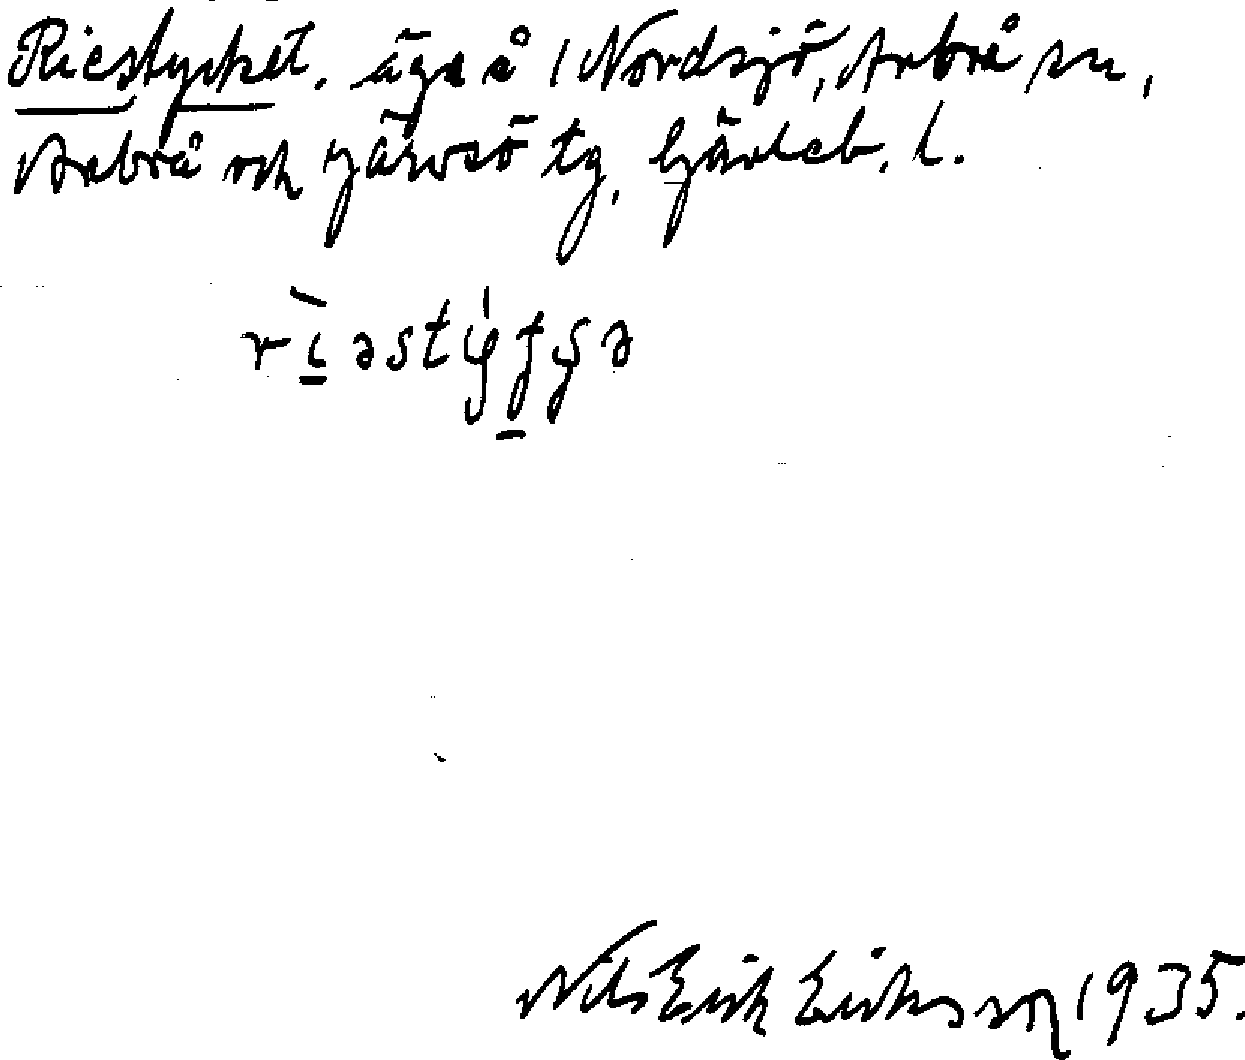 Riestycket. äga å 1 Nordsjö, Arbrå sn,
Arbrå och Järvsö tg, Gävleb. l.
Nils Erik Eriksson 1935.